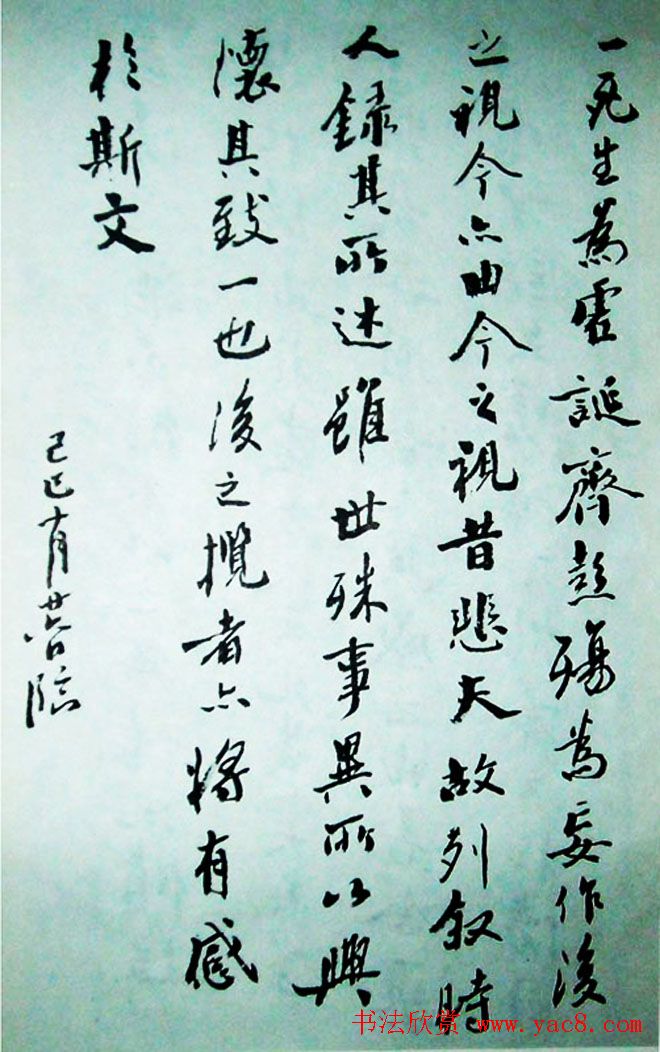 一死生為虛誕齊彭殤為妄作後
之視今亦由今之視昔悲夫故列叙時
人録其所述雖世殊事異所以興
懷其致一也後之攬者亦將有感
於斯文
己巳十月廿六日臨
书法欣赏 www.yac8.com